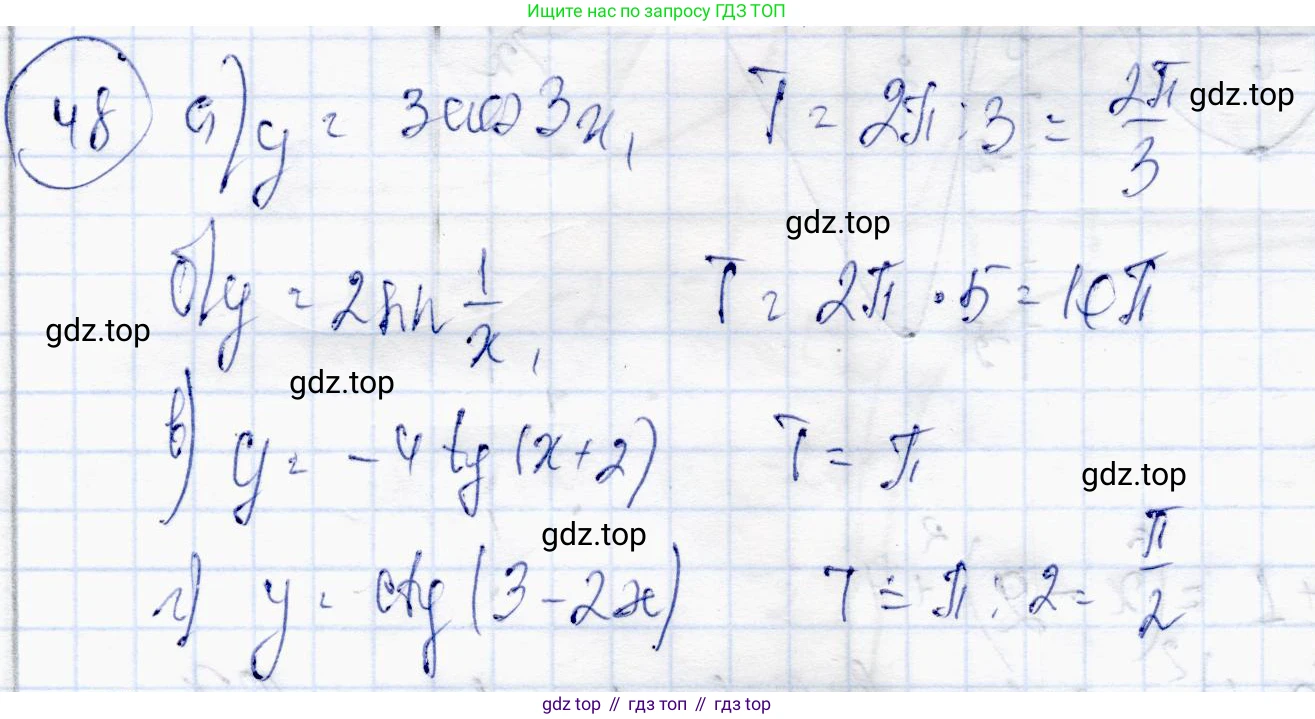 Ищите нас по запросу ГДЗ ТОП
48 а) y = 3cos 3x, T = 2π : 3 = 2π/3 gdz.top
gdz.top
б) y = 2 sin 1/x, T = 2π · 5 = 10π
gdz.top
gdz.top
в) y = -4 tg (x+2) T = π
gdz.top
gdz.top
г) y = ctg (3-2x) T = π : 2 = π/2
gdz.top // гдз топ // гдз top